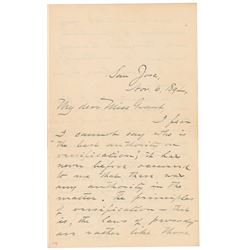 San Jose,
Nov. 6, 189
My dear Miss
I fear
I cannot say who is
"the best authority on
versification"; it has
never before occurred
to me that there was
any authority in the
matter. The principles
of versification — that
is, the laws of prosody
are rather like those